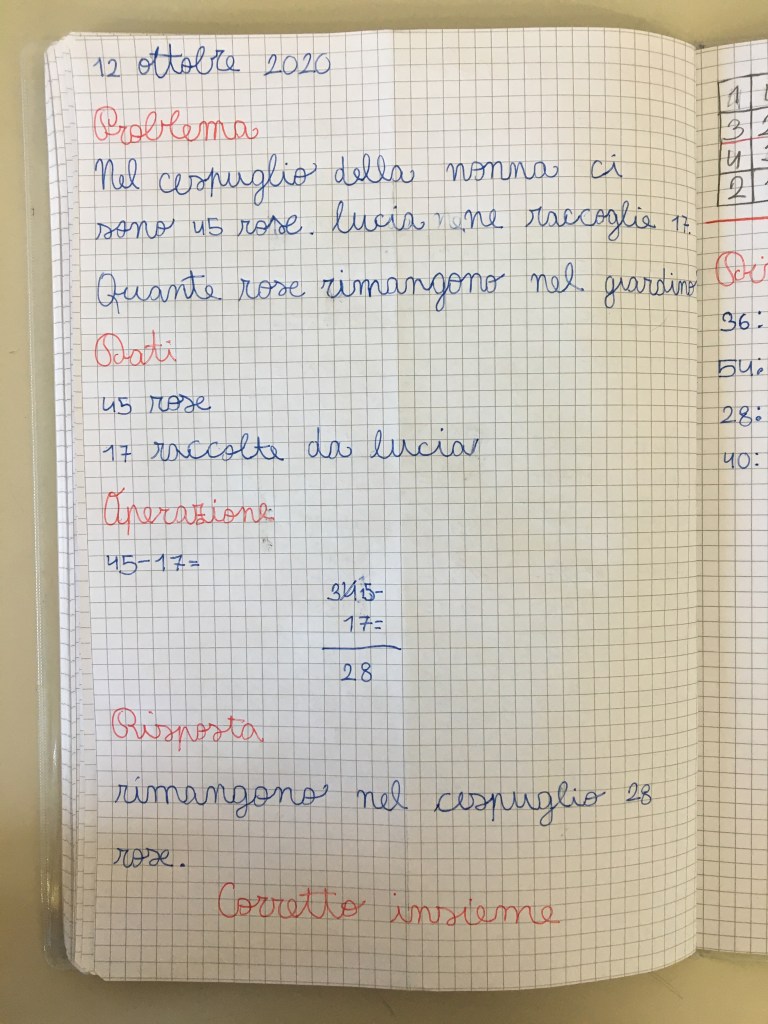 12 ottobre 2020
Problema
Nel cespuglio della nonna ci
sono 45 rose. lucia ne raccoglie 17.
Quante rose rimangono nel giardino
Dati
45 rose
17 raccolte da lucia
Operazione
45-17=
3415-
17=
28
Risposta
rimangono nel cespuglio 28
rose.
Corretto insieme
1
3
4
2
36:
54:
28:
40: